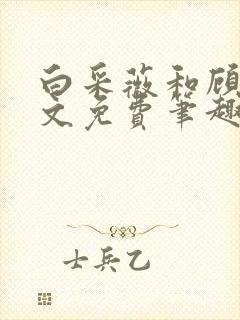 白采薇和顾
文免费笔趣
士兵乙